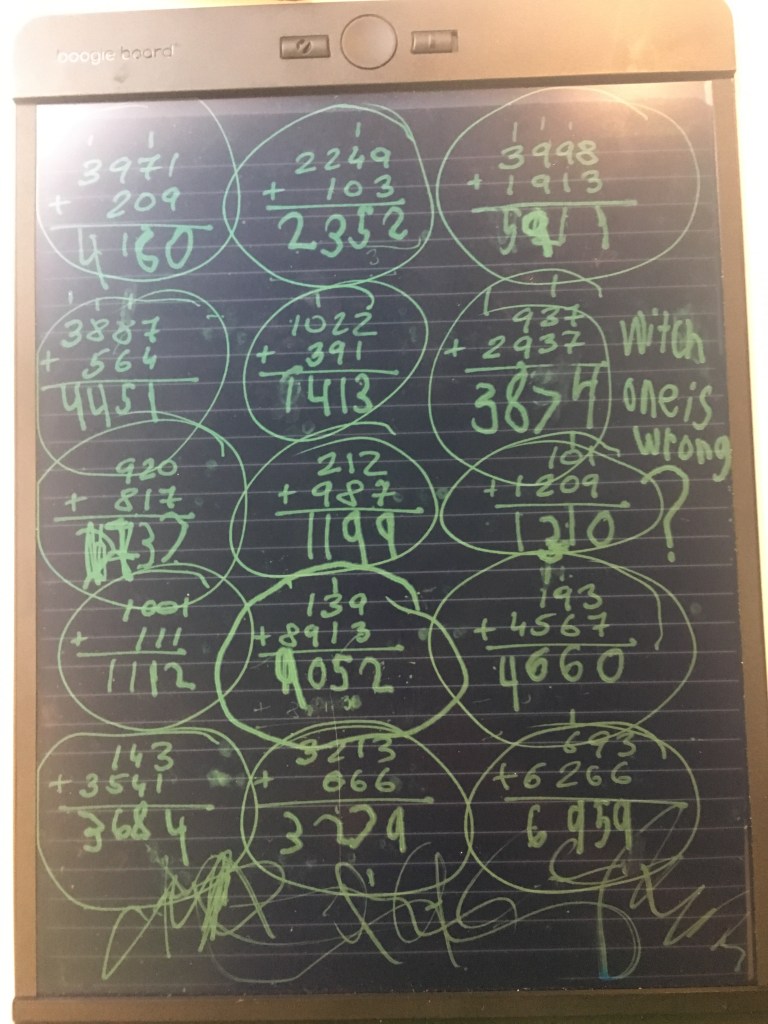 boogie board
1 1
3971
+ 209
4160
1
2249
+ 103
2352
3
1 1 1
3998
+ 1913
5911
1 11
3887
+ 564
4451
1
1022
+ 391
1413
1 1
937
+ 2937
3874
Witch
one is
wrong
?
920
+ 817
1737
212
+ 987
1199
1
101
+ 1209
1310
1001
+ 111
1112
1 1
139
+ 8913
9052
1 1
193
+ 4567
4660
143
+ 3541
3684
3213
+ 066
3279
1
693
+ 6266
6959